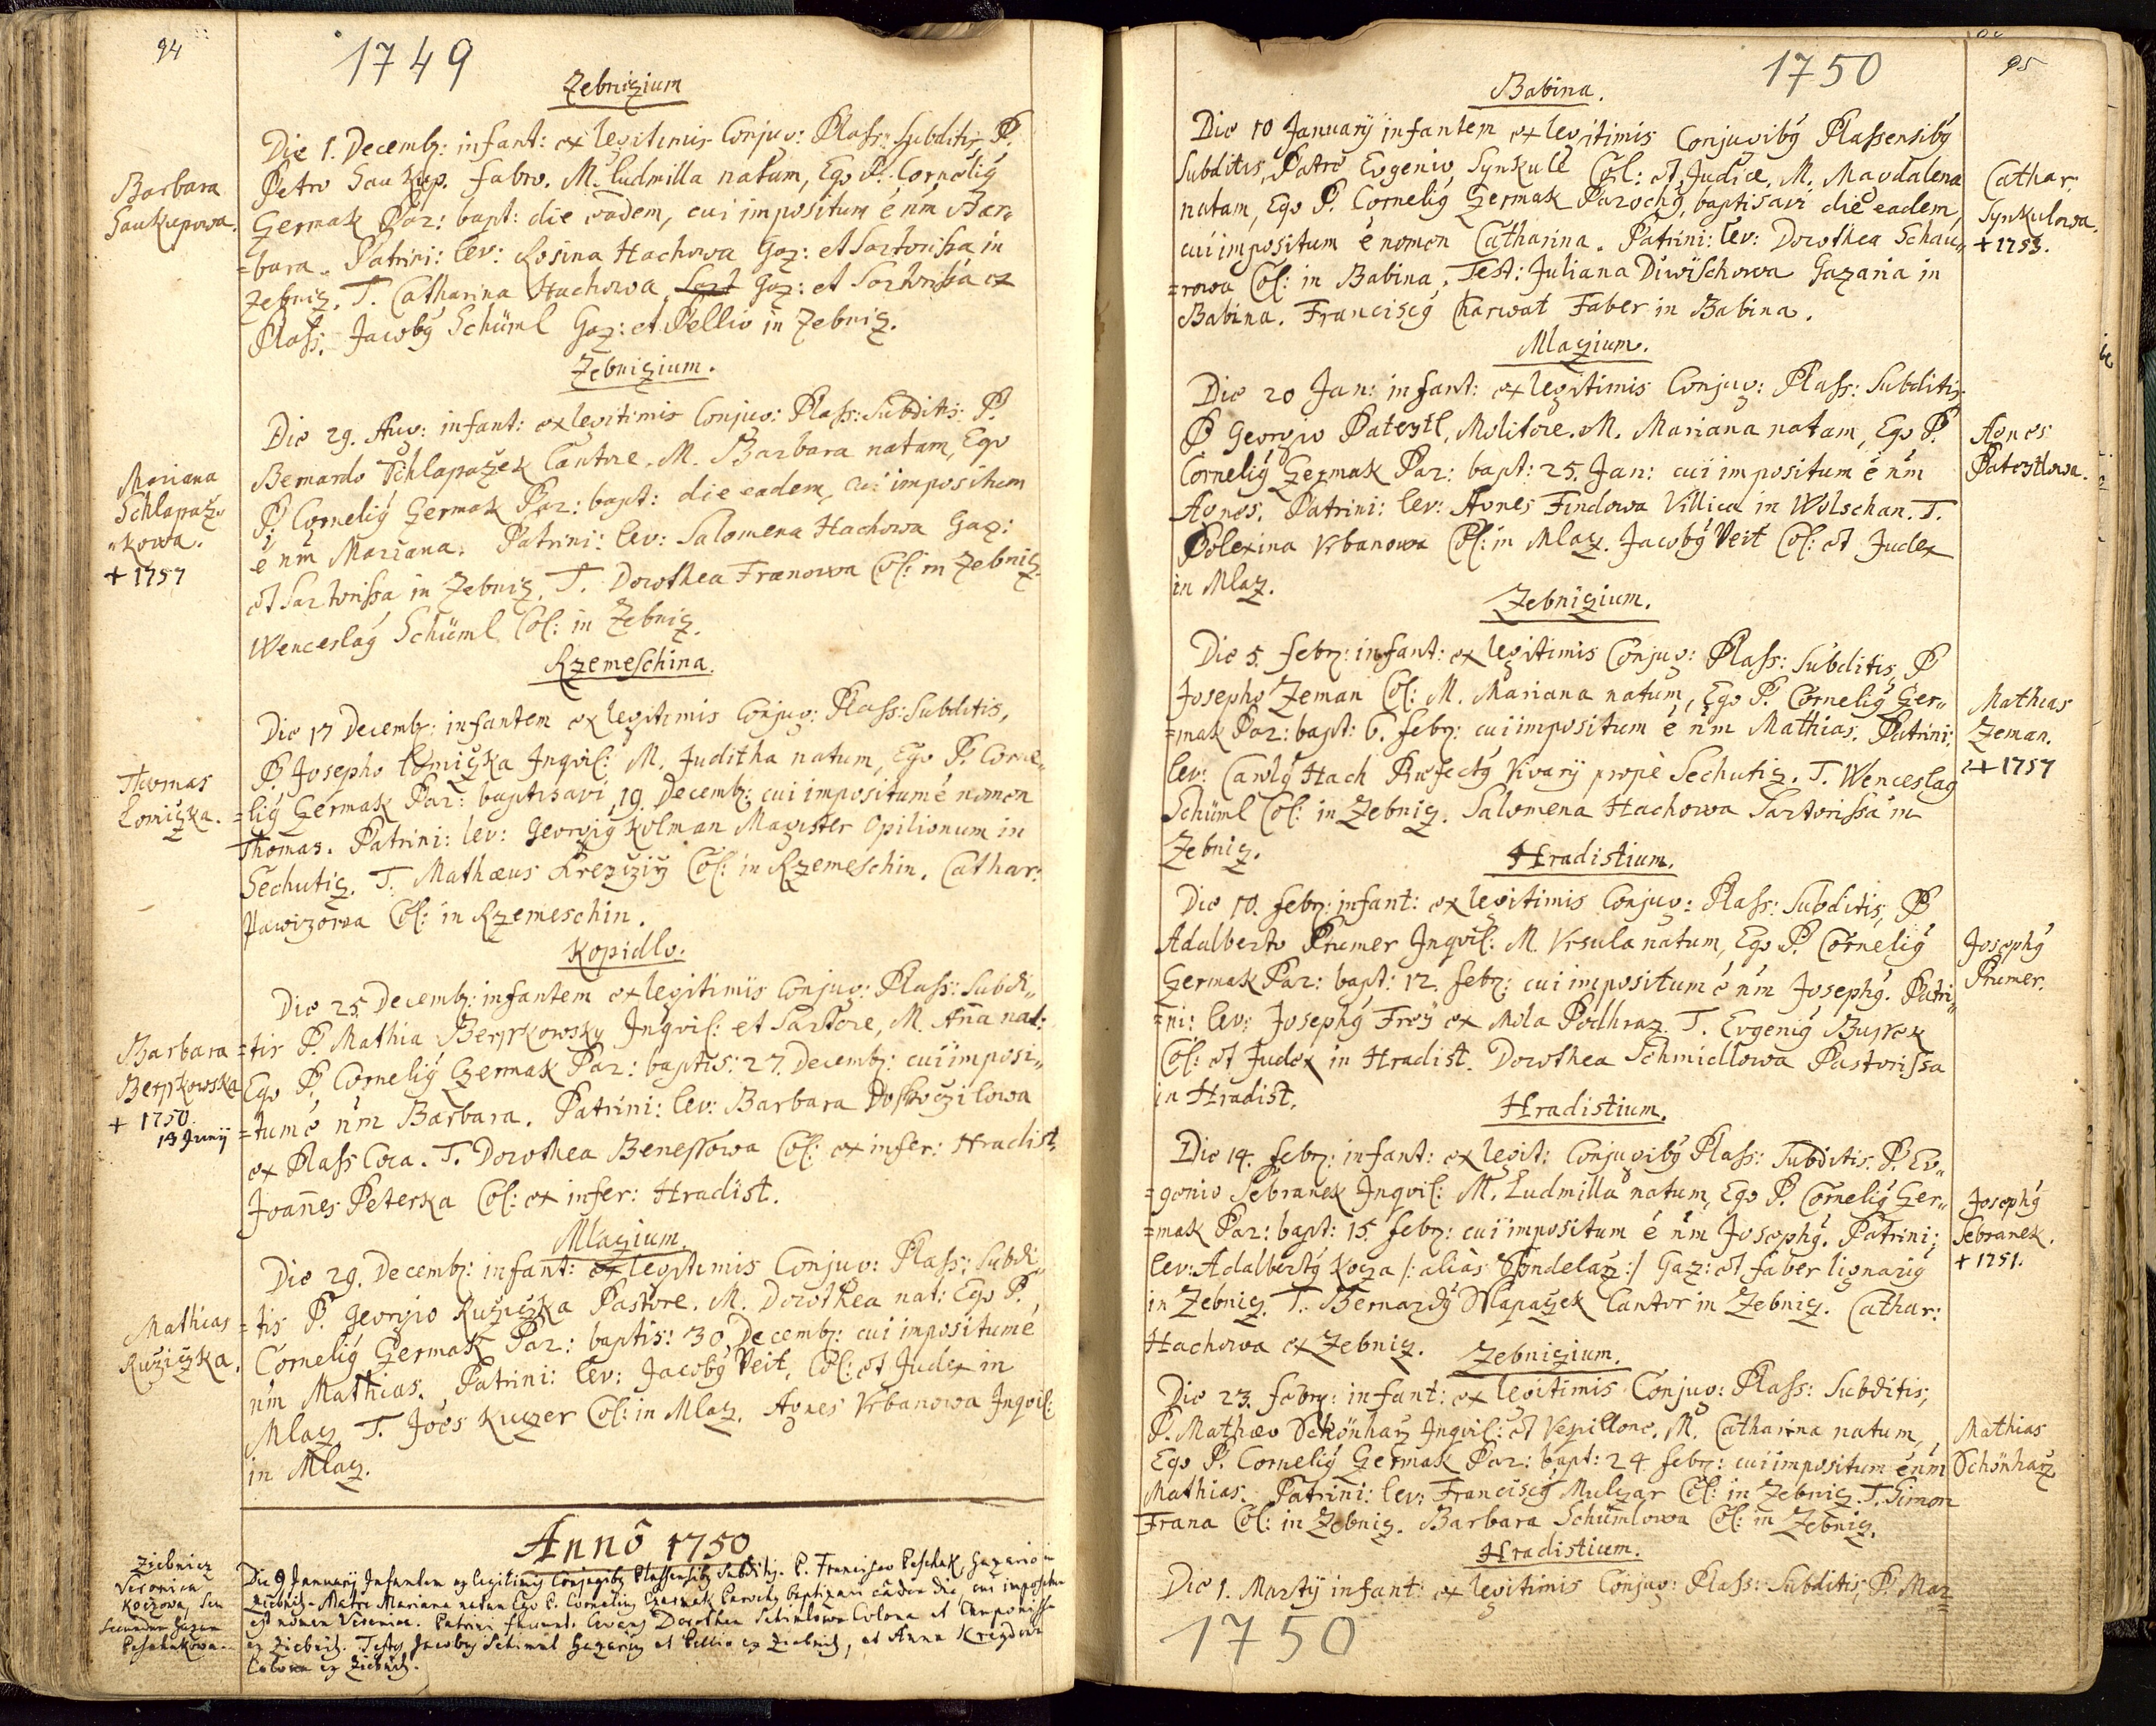 94
1749
Zebnizium
Die 1. Decemb: infant: ex legitimis Conjug: Plass: Subditis P.
Petro Saukup. fabro. M. Ludmilla natam, Ego P. Cornelig
Barbara
Saukupowa.
Czermak Par: bapt: die eadem, cui impositum é nm̃ Bar„
=bara. Patrini: lev: Rosina Hachowa Gaz: et Sartorissa in
Zebniz. T. Catharina Hachowa Gaz: et Sartorissa ex
Plass. Jacobg Schüml Gaz: et Pellio in Zebniz.
Zebnizium.
Die 29. Aug: infant: ex legitimis Conjug: Plass: Subditis: P.
Bernardo Schlapazek Cantore. M. Barbara natam, Ego
Mariana
Schlapaz„
„kowa.
+ 1757
P. Cornelig Czermak Par: bapt: die eadem, cui impositum
é nm̃ Mariana. Patrini: lev: Salomena Hachowa Gaz:
et Sartorissa in Zebniz. T. Dorothea Franowa Col: in Zebniz
Wenceslag Schüml Col: in Zebniz.
Rzemeschina.
Die 17 Decemb: infantem ex legitimis Conjug: Plass: Subditis,
P. Josepho Lomiczka Inqvil: M. Juditha natum, Ego P. Corne„
Thomas
Lomiczka.
=lig Czermak Par: baptisavi 19. Decemb: cui impositum é nomen
Thomas. Patrini: lev: Georgig Kolman Magister Opilionum in
Sechutiz. T. Mathæus Krezcziy Col: in Rzemeschin. Cathar:
Pawizowa Col: in Rzemeschin.
Kopidlo.
Die 25 Decemb: infantem ex legitimis Conjug: Plass: Subdi„
Barbara
Berpkowska
+ 1750.
13 Junij
=tis P. Mathia Berpkowsky Inqvil: et Sartore, M. Añna nat:
Ego P. Cornelig Czermak Par: baptis: 27. Decemb: cui imposi„
=tum é nm̃ Barbara. Patrini: lev: Barbara Doskoczilowa
ex Plass Coca. T. Dorothea Benessowa Col: ex infer: Hradist.
Joañnes Peterka Col: ex infer: Hradist.
Mlazium.
Die 29. Decemb: infant: ex legitimis Conjug: Plass: Subdi„
Mathias
Ružiczka.
=tis P. Georgio Ružiczka Pastore. M. Dorothea nat: Ego P.
Cornelig Czermak Par: baptis: 30 Decemb: cui impositum é
nm̃ Mathias. Patrini: lev: Jacobg Veit, Col: et Judex in
Mlaz. T. Joes Kuczer Col: in Mlaz. Agnes Vrbanowa Inqvil:
in Mlaz.
Annô 1750
Ziebnicz
Veronica
Koczowa, seu
secundum
Peschakowa
Die 9 Januarij Infantem ex legitimis Conjugibg Plassensibg Subditis. P. Francisco Peschak, Gazario in
Ziebnitz. Matre Mariana natam Ego P. Cornelius Czermak Parochg baptizavi eâdem die, cui impositum
est nomen Veronica. Patrini fuerunt Levans Dorothea Schimlowa Colona et
ex Ziebnitz. Testes Jacobg Schiml Gazarig et Pellio ex Ziebnitz, et Anna
Colona ex Ziebnitz.
95
1750
Babina.
Die 10 Januarij infantem ex legitimis Conjugibg Plassensibg
Subditis, Patre Evgenio Synkule Col: et Judice, M. Magdalena
Cathar:
Synkulowa.
+ 1753.
natam, Ego P. Cornelig Czermak Parochg, baptisavi die eadem,
cui impositum é nomen Catharina. Patrini: lev: Dorothea Schau„
=rowa Col: in Babina. Test: Juliana Diwischowa Gazaria in
Babina. Franciscg Charwat Faber in Babina.
Mlazium.
Die 20 Jan: infant: ex legitimis Conjug: Plass: Subditis,
P. Georgio Pateystl, Molitore. M. Mariana natam, Ego P.
Agnes
Pateystlowa.
Cornelig Czermak Par: bapt: 25. Jan: cui impositum é nm̃
Agnes. Patrini: lev: Agnes Findowa Villica in Wolschan. T.
Polexina Vrbanowa Col: in Mlaz. Jacobg Veit Col: et Judex
in Mlaz.
Zebnizium.
Die 5. Febr: infant: ex legitimis Conjug: Plass: Subditis, P
Josepho Zeman Col: M. Mariana natum, Ego P. Cornelig Czer„
Mathias
Zeman.
+ 1757
=mak Par: bapt: 6. Febr: cui impositum é nm̃ Mathias. Patrini:
lev: Carolg Hach Præfectg Vivarij propè Sechutiz. T. Wenceslag
Schüml Col: in Zebniz. Salomena Hachowa Sartorissa in
Zebniz.
Hradistium.
Die 10. Febr: infant: ex legitimis Conjug: Plass: Subditis, P
Adalberto Prumer Inqvil: M. Vrsula natum, Ego P. Cornelig
Josephg
Prumer.
Czermak Par: bapt: 12. Febr: cui impositum é nm̃ Josephg. Patri„
=ni: lev: Josephg Frey ex Mola Podhraz. T. Evgenig Bujrek
Col: et Judex in Hradist. Dorothea Schmiedlowa Pastorissa
in Hradist.
Hradistium.
Die 14. Febr: infant: ex legit: Conjugibg Plass: Subditis. P. Ev„
=genio Sebranek Inqvil: M. Ludmilla natum, Ego P. Cornelig Czer„
Josephg
Sebranek.
+ 1751.
=mak Par: bapt: 15. Febr: cui impositum é nm̃ Josephg. Patrini:
lev: Adalbertg Kocza /: aliàs Sondelarz :/ Gaz: et faber lignarig
in Zebniz. T. Bernardg Slapaczek Cantor in Zebniz. Cathar:
Hachowa ex Zebniz.
Zebnizium.
Die 23. Febr: infant: ex legitimis Conjug: Plass: Subditis,
P. Mathæo Schönharz Inqvil: et Vespillone. M. Catharina natum,
Mathias
Schönharz
Ego P. Cornelig Czermak Par: bapt: 24 Febr: cui impositum é nm̃
Mathias. Patrini: lev: Franciscg Mulczar Col: in Zebniz. T. Simon
Frana Col: in Zebniz. Barbara Schümlowa Col: in Zebniz.
Hradistium.
Die 1. Martij infant: ex legitimis Conjug: Plass: Subditis, P. Mar=
1750